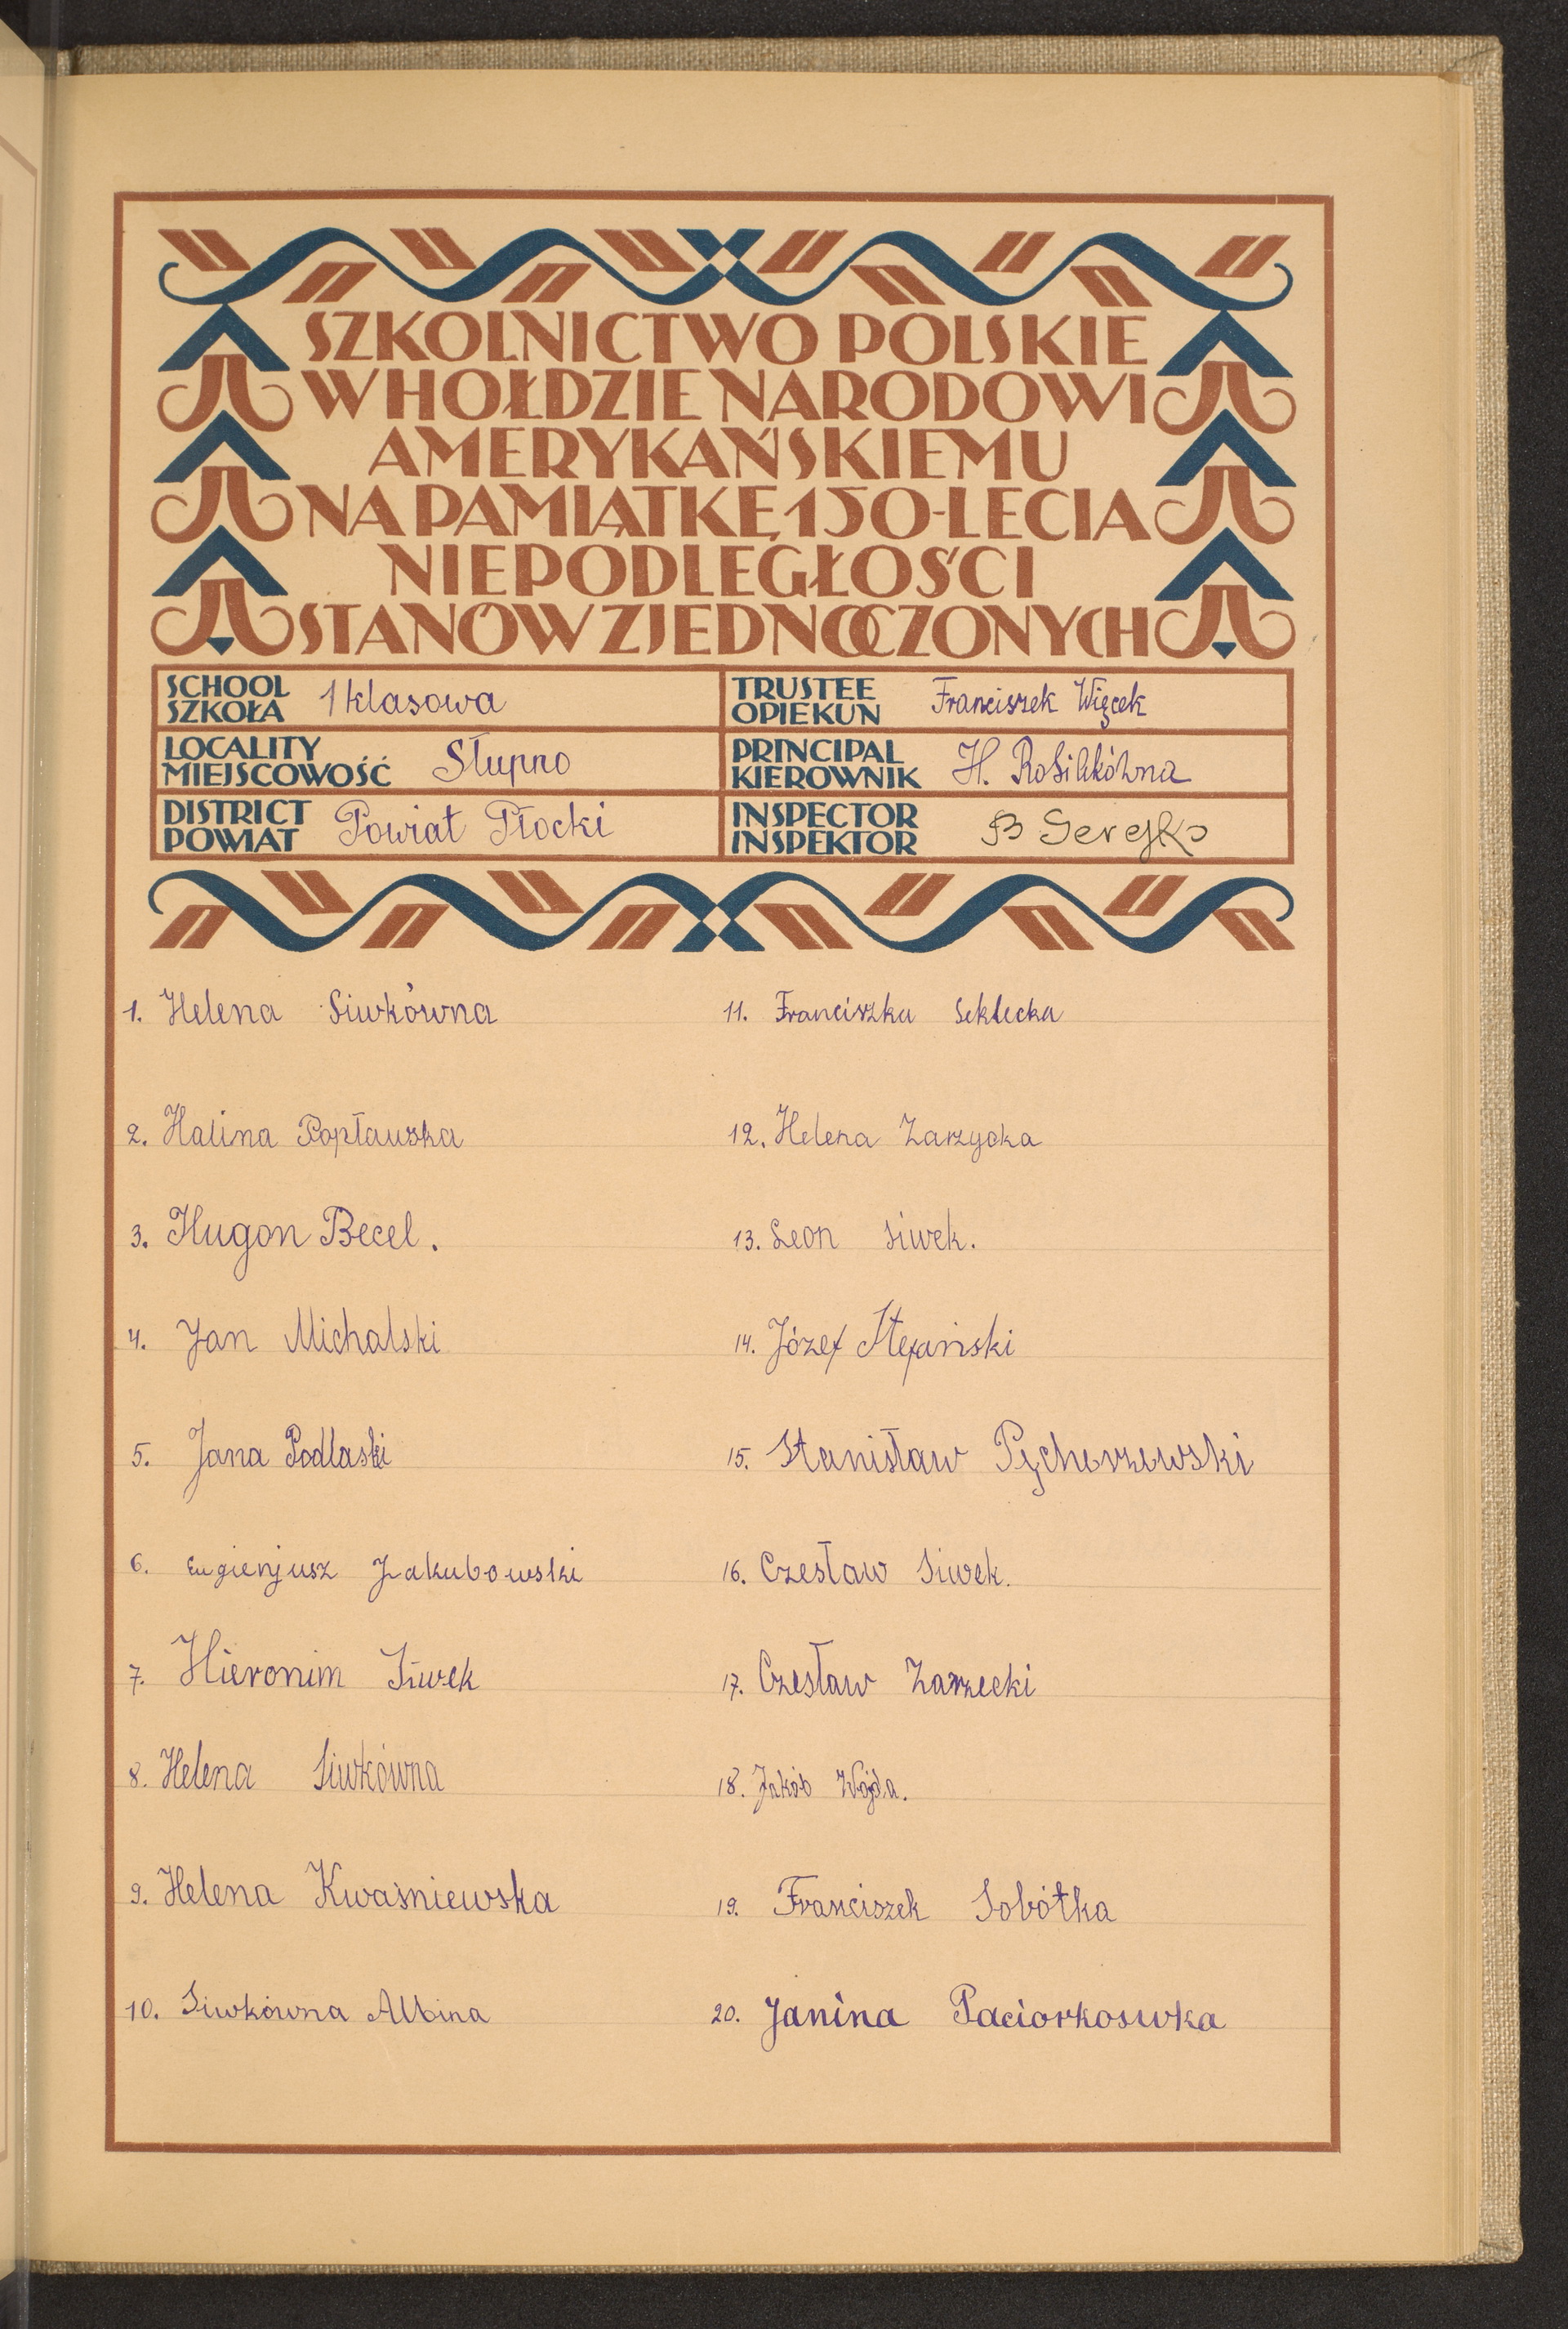 SZKOLNICTWO POLSKIE
W HOŁDZIE NARODOWI
AMERYKAŃSKIEMU
NA PAMIĄTKĘ 150-LECIA
NIEPODLEGŁOŚCI
STANÓW ZJEDNOCZONYCH
SCHOOL
SZKOŁA 1 klasowa
LOCALITY
MIEJSCOWOŚĆ Słupno
DISTRICT
POWIAT Powiat Płocki
TRUSTEE
OPIEKUN Franciszek Więcek
PRINCIPAL
KIEROWNIK H.
INSPECTOR
INSPEKTOR B Gerejko
1. Helena Siwkówna
2. Halina Popławska
3. Hugon Becel.
4. Jan Michalski
5. Jana Podlaski
6. Eugienjusz Jakubowski
7. Hieronim Siwek
8. Helena Siwkówna
9. Helena Kwaśniewska
10. Siwkówna Albina
11. Franciszka Seklecka
12. Helena Zarzycka
13. Leon Siwek.
14. Józef Stefański
15. Stanisław Pęcherzewski
16. Czesław Siwek.
17. Czesław Zarzecki
18. Jakób Wojda.
19. Franciszek Sobótka
20. Janina Paciorkoswka